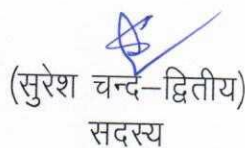 (सुरेश चन्द–द्वितीय)
सदस्य